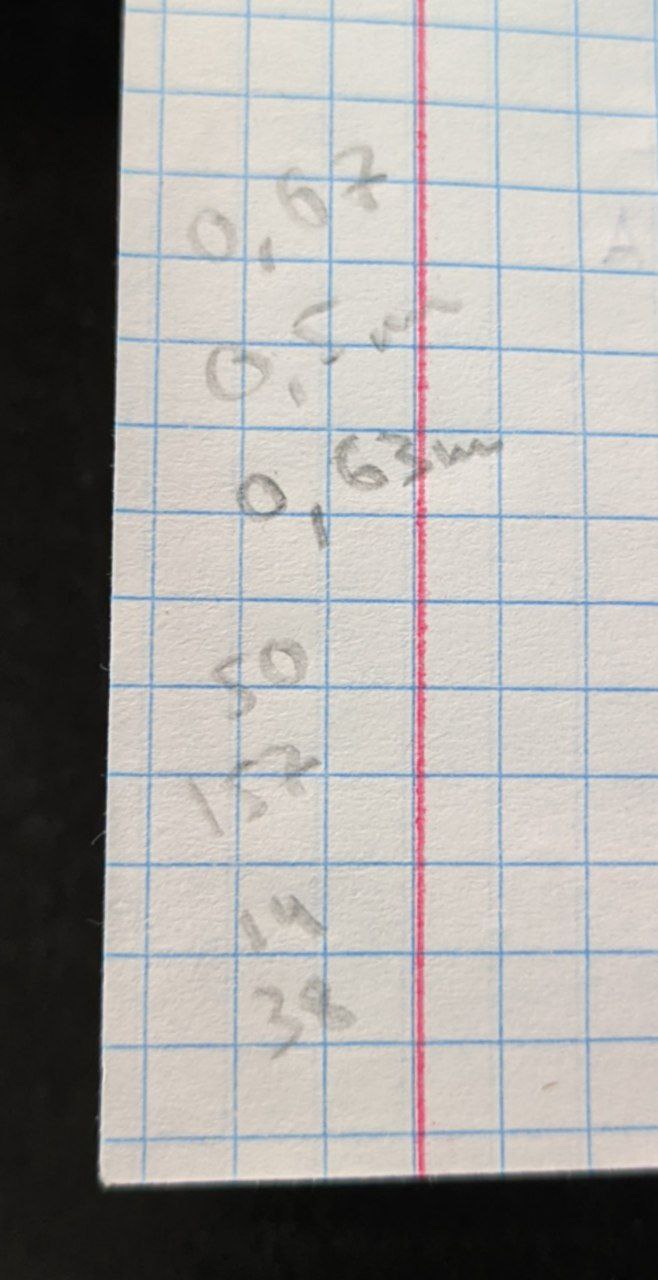 0,67
0,5m
0,63m
50
157
14
38